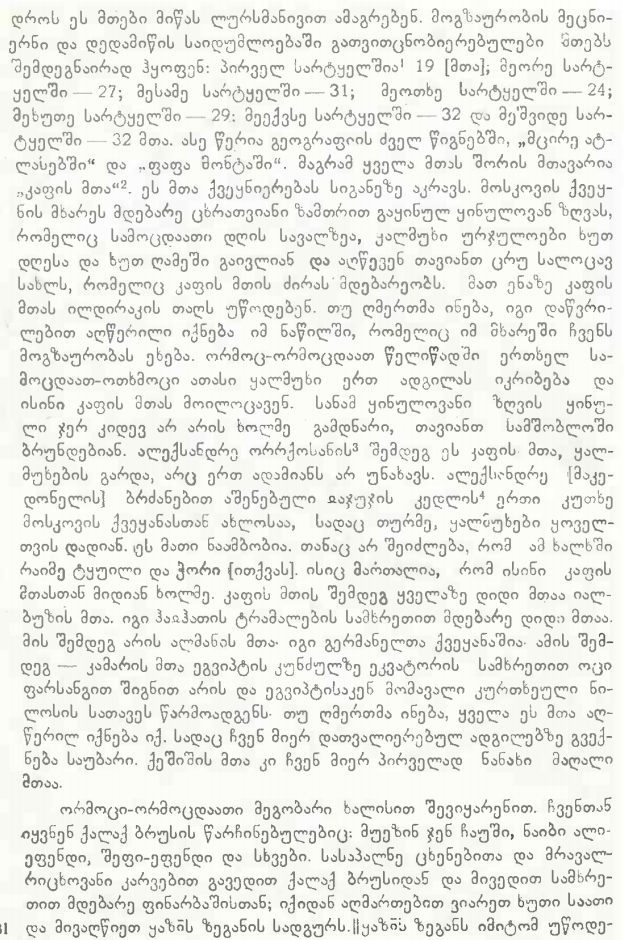 დროს ეს მთები მიწას ლურსმანივით ამაგრებენ. მოგზაურობის მეცნი-
ერნი და დედამიწის საიდუმლოებაში გათვითცნობიერებულები მთებს
შემდეგნაირად ჰყოფენ: პირველ სარტყელშია¹ 19 [მთა]; მეორე სარტ-
ყელში — 27; მესამე სარტყელში — 31; მეოთხე სარტყელში — 24;
მეხუთე სარტყელში — 29: მეექვსე სარტყელში — 32 და მეშვიდე სარ-
ტყელში — 32 მთა. ასე წერია გეოგრაფიის ძველ წიგნებში, „მცირე ატ-
ლასებში“ და „ფაფა მონტაში“. მაგრამ ყველა მთას შორის მთავარია
„კაფის მთა“². ეს მთა ქვეყნიერებას სიგანეზე აკრავს. მოსკოვის ქვეყ-
ნის მხარეს მდებარე ცხრათვიანი ზამთრით გაყინულ ყინულოვან ზღვას,
რომელიც სამოცდაათი დღის სავალზეა, ყალმუხი ურჯულოები ხუთ
დღესა და ხუთ ღამეში გაივლიან და აღწევენ თავიანთ ცრუ სალოცავ
სახლს, რომელიც კაფის მთის ძირას მდებარეობს. მათ ენაზე კაფის
მთას ილდირაკის თაღს უწოდებენ. თუ ღმერთმა ინება, იგი დაწვრი-
ლებით აღწერილი იქნება იმ ნაწილში, რომელიც იმ მხარეში ჩვენს
მოგზაურობას ეხება. ორმოც-ორმოცდაათ წელიწადში ერთხელ სა-
მოცდაათ-ოთხმოცი ათასი ყალმუხი ერთ ადგილას იკრიბება და
ისინი კაფის მთას მოილოცავენ. სანამ ყინულოვანი ზღვის ყინუ-
ლი ჯერ კიდევ არ არის ხოლმე გამდნარი, თავიანთ სამშობლოში
ბრუნდებიან. ალექსანდრე ორრქოსანის³ შემდეგ ეს კაფის მთა, ყალ-
მუხების გარდა, არც ერთ ადამიანს არ უნახავს. ალექსანდრე [მაკე-
დონელის] ბრძანებით აშენებული მაჯუჯის კედლის⁴ ერთი კუთხე
მოსკოვის ქვეყანასთან ახლოსაა, სადაც თურმე, ყალმუხები ყოველ-
თვის დადიან. ეს მათი ნაამბობია. თანაც არ შეიძლება, რომ ამ ხალხში
რაიმე ტყუილი და ჭორი [ითქვას]. ისიც მართალია, რომ ისინი კაფის
მთასთან მიდიან ხოლმე. კაფის მთის შემდეგ ყველაზე დიდი მთაა იალ-
ბუზის მთა. იგი ჰაჲჰათის ტრამალების სამხრეთით მდებარე დიდი მთაა.
მის შემდეგ არის ალმანის მთა. იგი გერმანელთა ქვეყანაშია. ამის შემ-
დეგ — კამარის მთა ეგვიპტის კუნძულზე ეკვატორის სამხრეთით ოცი
ფარსანგით შიგნით არის და ეგვიპტისაკენ მომავალი კურთხეული ნი-
ლოსის სათავეს წარმოადგენს. თუ ღმერთმა ინება, ყველა ეს მთა აღ-
წერილ იქნება იქ. სადაც ჩვენ მიერ დათვალიერებულ ადგილებზე გვექ-
ნება საუბარი. ქეშიშის მთა კი ჩვენ მიერ პირველად ნანახი მაღალი
მთაა.
ორმოცი-ორმოცდაათი მეგობარი ხალისით შევიყარენით. ჩვენთან
იყვნენ ქალაქ ბრუსის წარჩინებულებიც: მუეზინ ჯენ ჩაუში, ნაიბი ალი-
ეფენდი, შეფი-ეფენდი და სხვები. სასაპალნე ცხენებითა და მრავალ-
რიცხოვანი კარვებით გავედით ქალაქ ბრუსიდან და მივედით სამხრე-
თით მდებარე ფინარბაშისთან; იქიდან აღმართებით ვიარეთ ხუთი საათი
და მივაღწიეთ ყაზის ზეგანის სადგურს.||ყაზის ზეგანს იმიტომ უწოდე-